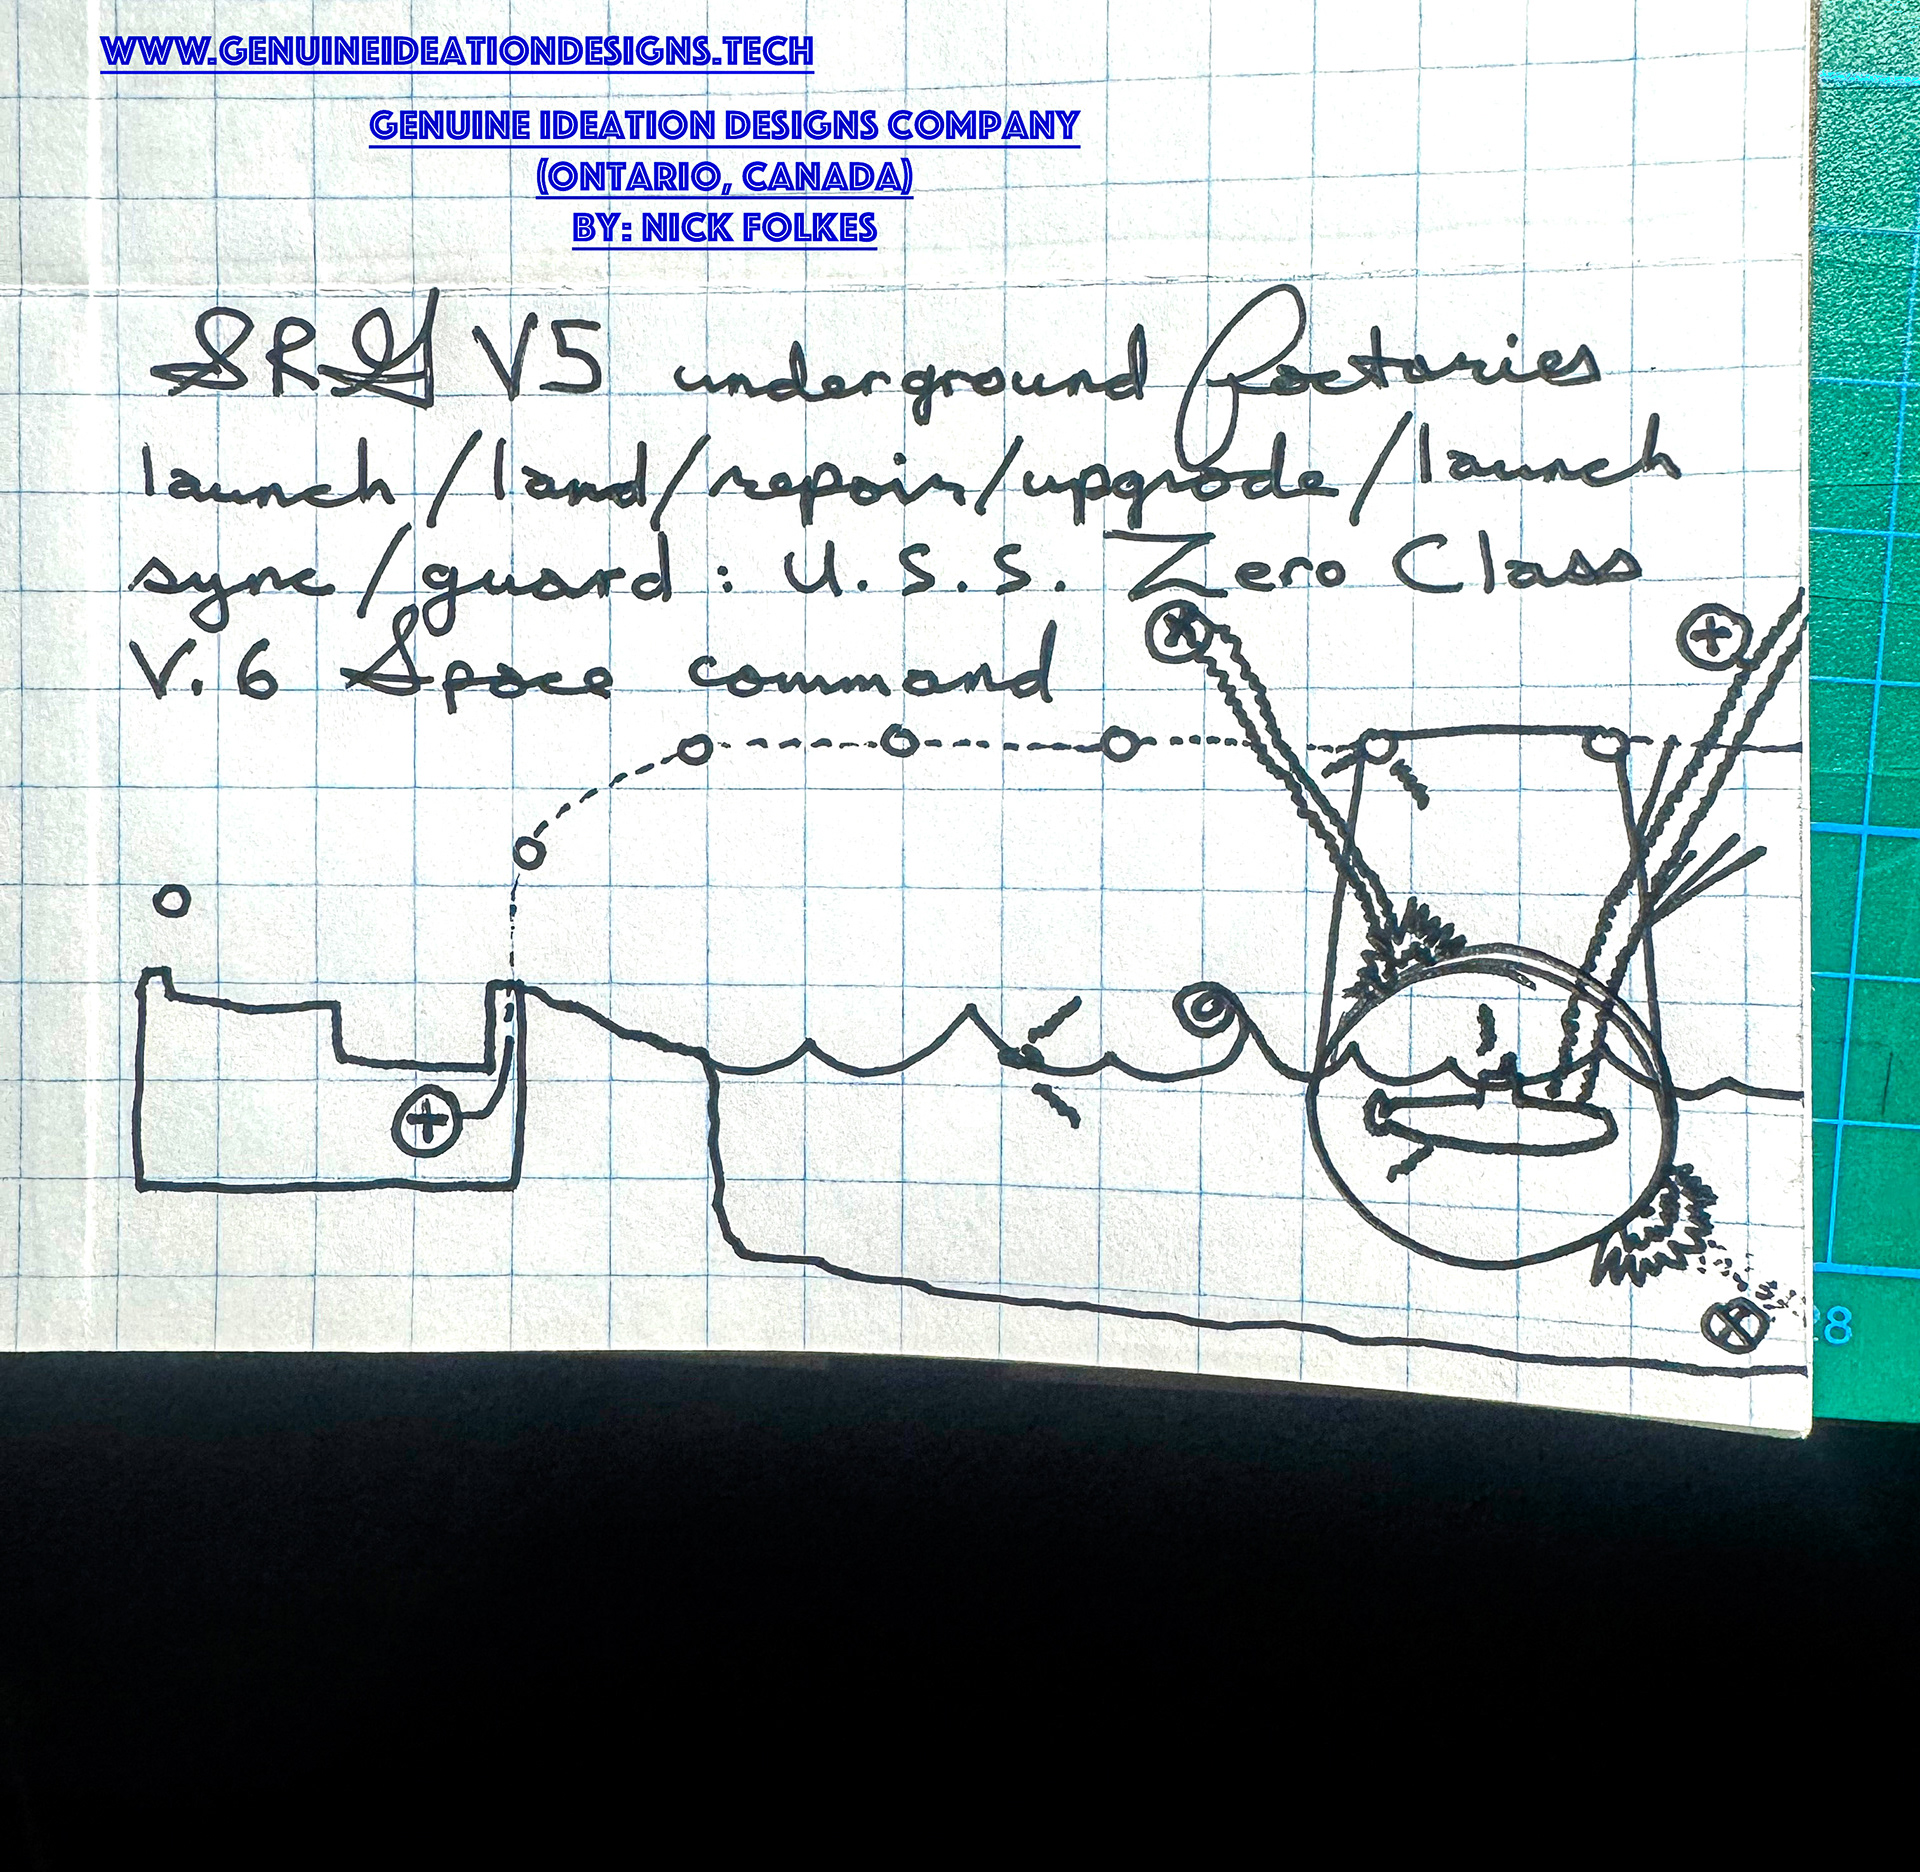 WWW.GENUINEIDEATIONDESIGNS.TECH
GENUINE IDEATION DESIGNS COMPANY
(ONTARIO, CANADA)
BY: NICK FOLKES
SRG V5 underground factories
launch/land/repair/upgrade/launch
sync/guard: U.S.S. Zero Class
V.6 Space command
28